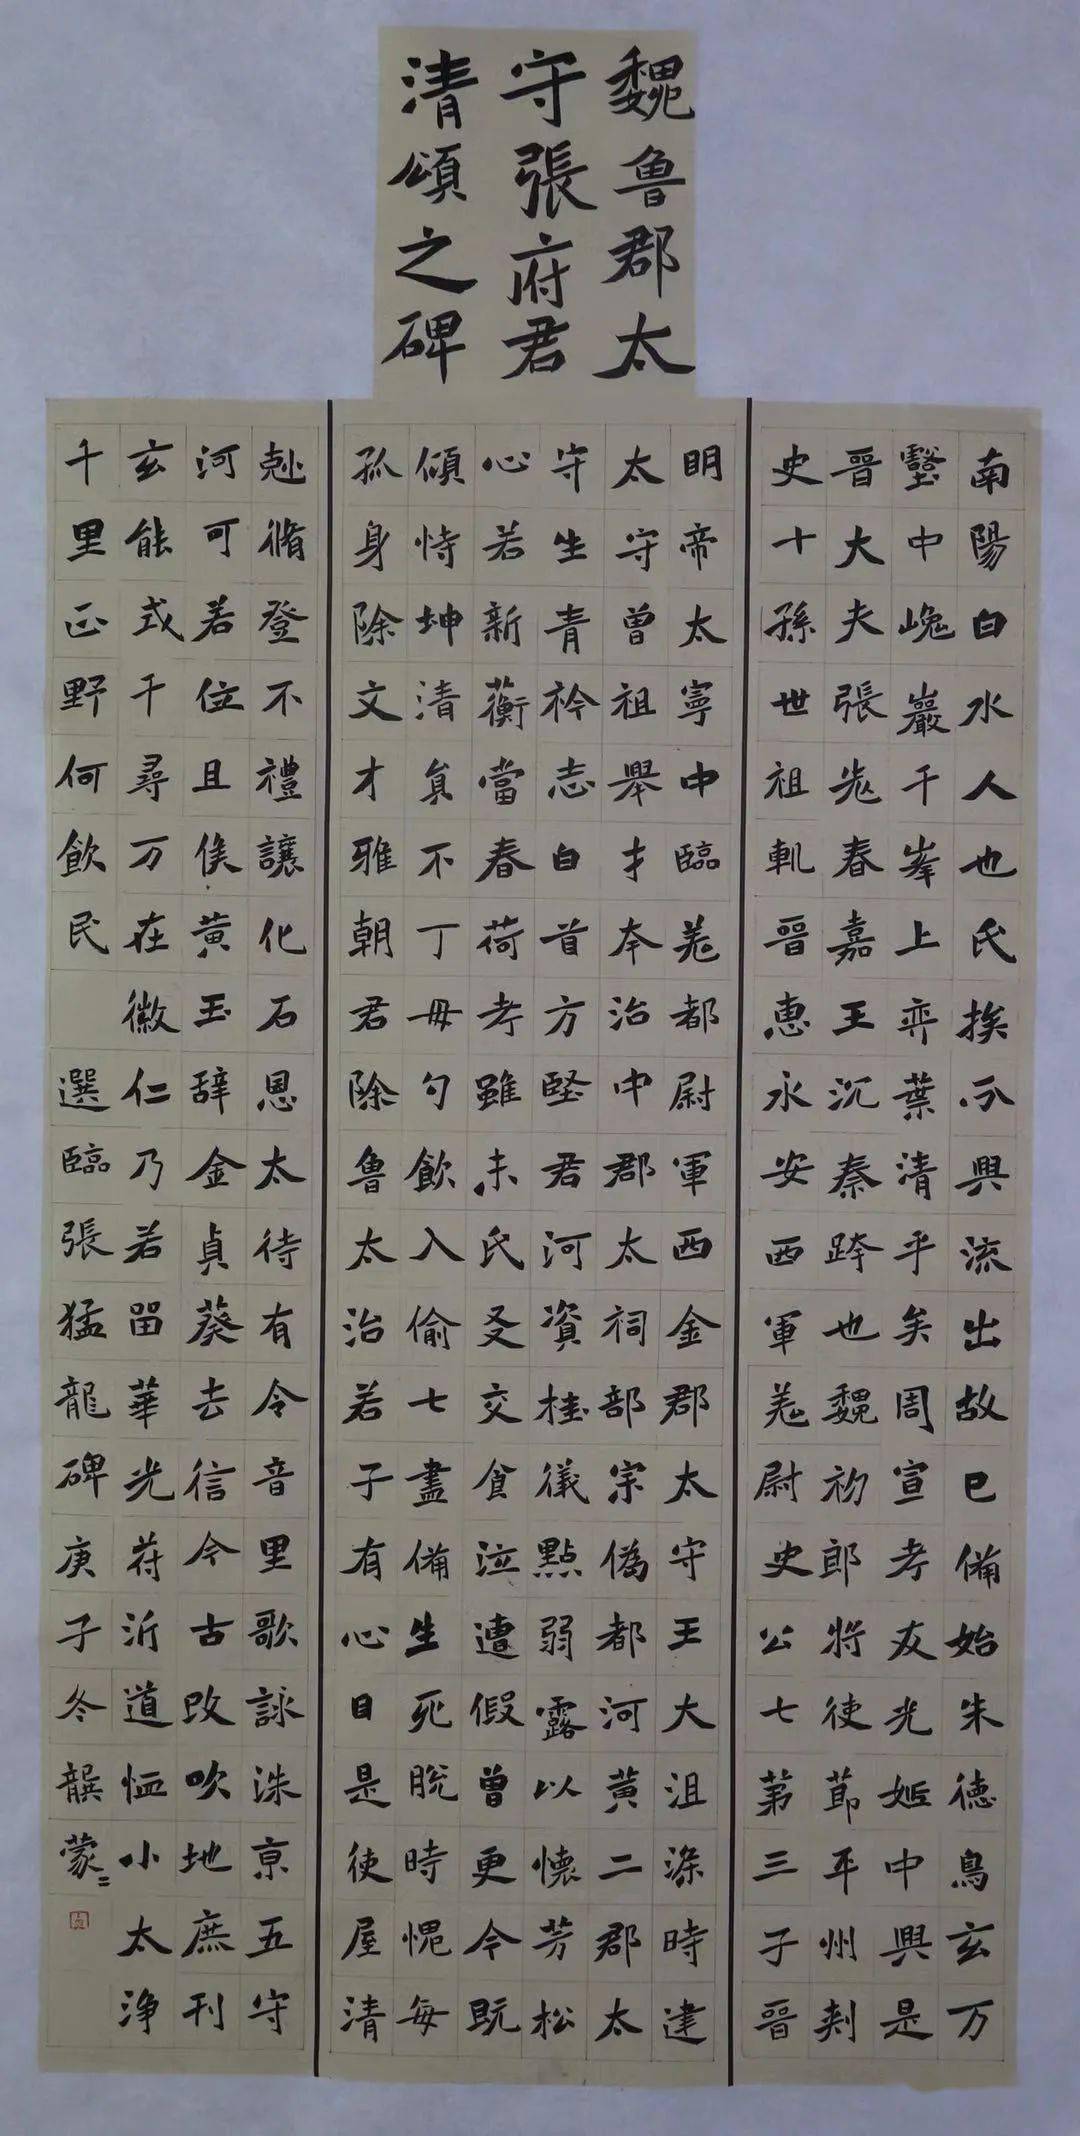 魏魯郡太
守張府君
清頌之碑
南陽白水人也氏挨分興流出故已備始朱德鳥玄万
壑中巉巖千峯上弈葉清乎矣周宣考友光姬中興是
晉大夫張老春嘉王沉秦跨也魏初郎將使節平州刺
史十孫世祖軌晉惠永安西軍羗尉史公七第三子晉
明帝太寧中臨羗都尉軍西金郡太守王大沮渠時建
太守曾祖舉才本治中郡太祠部宗偽都河黃二郡太
守生青衿志白首方堅君河資桂儀點弱露以懷芳松
心若新蘅當春荷考雖未氏爻交食泣遭假曾更今既
傾恃坤清真不丁毋勺飲入偷七盡備生死脫時愧每
孤身除文才雅朝君除魯太治若子有心目是使屋清
剋脩登不禮讓化石恩太待有令音里歌詠洙京五守
河可若位且俟黃玉辞金貞葵去信今古改吹地庶刊
玄能式千尋万在徽仁乃若留華光荷沂道恤小太浄
千里正野何飲民 選臨張猛龍碑庚子冬龔蒙